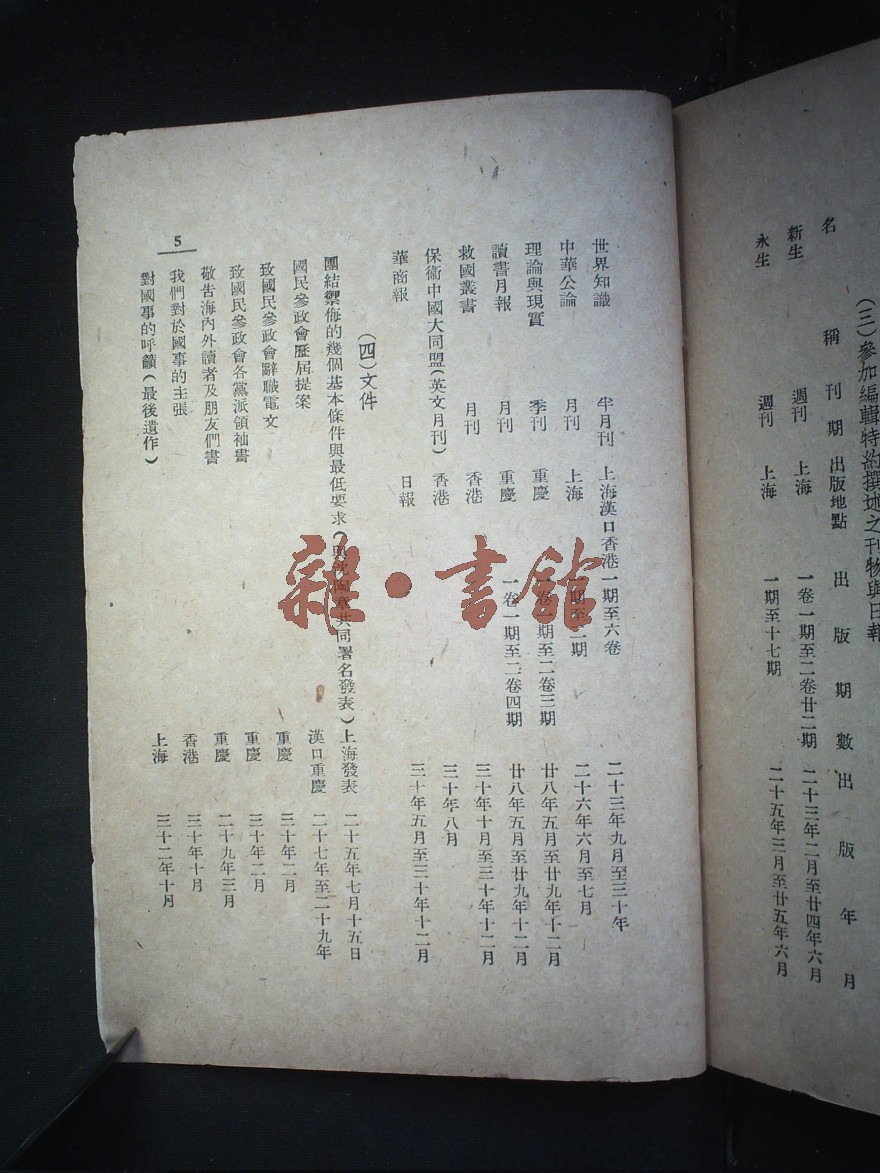 (三)參加編輯特約撰述之刊物與日報
名稱 刊期 出版地點 出版期數 出版年月
新生 週刊 上海 一卷一期至二卷廿二期 二十三年二月至廿四年六月
永生 週刊 上海 一期至十七期 二十五年三月至廿五年六月
世界知識 半月刊 上海漢口香港 一期至六卷 二十三年九月至三十年
中華公論 月刊 上海 一期至二期 二十六年六月至七月
理論與現實 季刊 重慶 一卷一期至二卷三期 廿八年五月至廿九年十二月
讀書月報 月刊 重慶 一卷一期至二卷四期 廿八年五月至廿九年十二月
救國叢書 月刊 香港 三十年十月至三十年十二月
保衛中國大同盟(英文月刊) 香港 三十年八月
華商報 日報 三十年五月至三十年十二月
(四)文件
團結禦侮的幾個基本條件與最低要求(與沈陶章共同署名發表) 上海發表 二十五年七月十五日
國民參政會歷屆提案 漢口重慶 二十七年至二十九年
致國民參政會辭職電文 重慶 三十年二月
致國民參政會各黨派領袖書 重慶 三十年二月
敬告海內外讀者及朋友們書 重慶 二十九年三月
我們對於國事的主張 香港 三十年十月
對國事的呼籲(最後遺作) 上海 三十二年十月
5
雜·書館